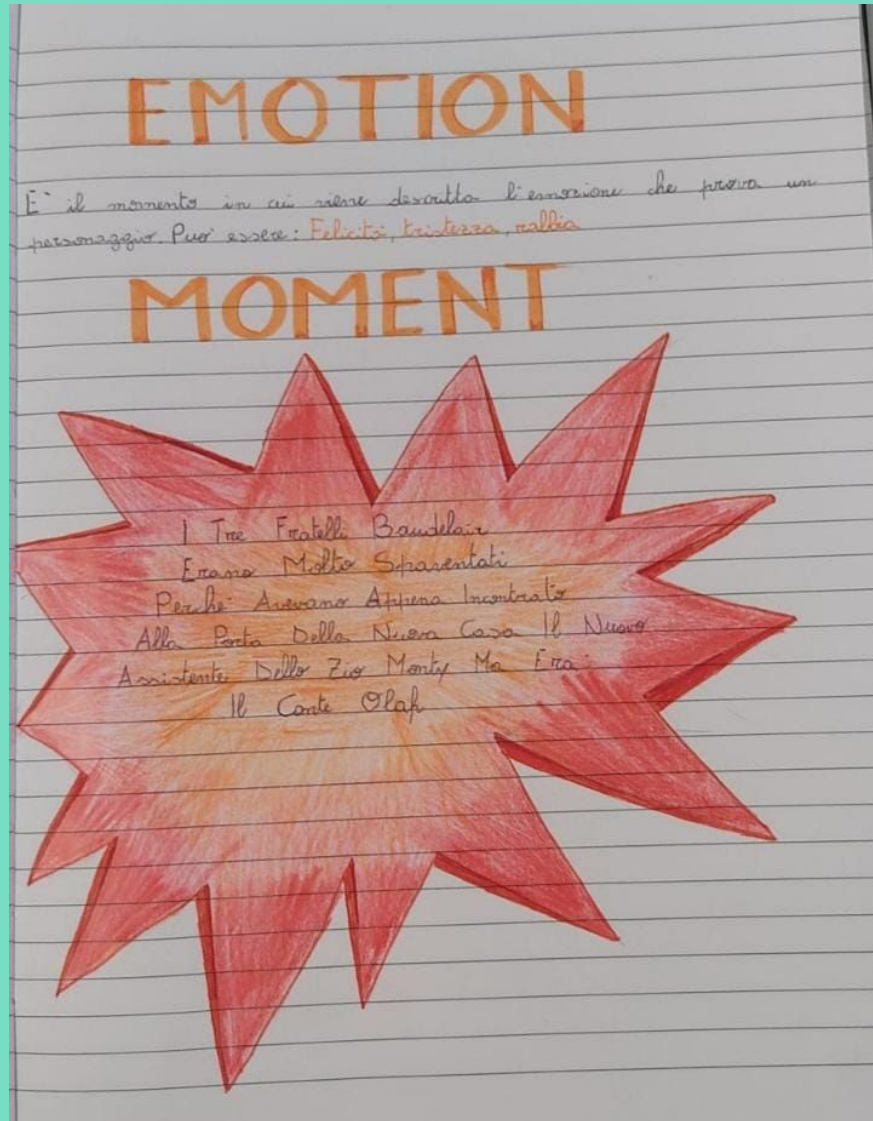 EMOTION
E' il momento in cui viene descritta l'emozione che prova un
personaggio. Puo' essere: Felicità, tristezza, rabbia
MOMENT
I Tre Fratelli Baudelair
Erano Molto Spaventati
Perche' Avevano Appena Incontrato
Alla Porta Della Nuova Casa Il Nuovo
Assistente Dello Zio Monty Ma Era:
Il Conte Olaf